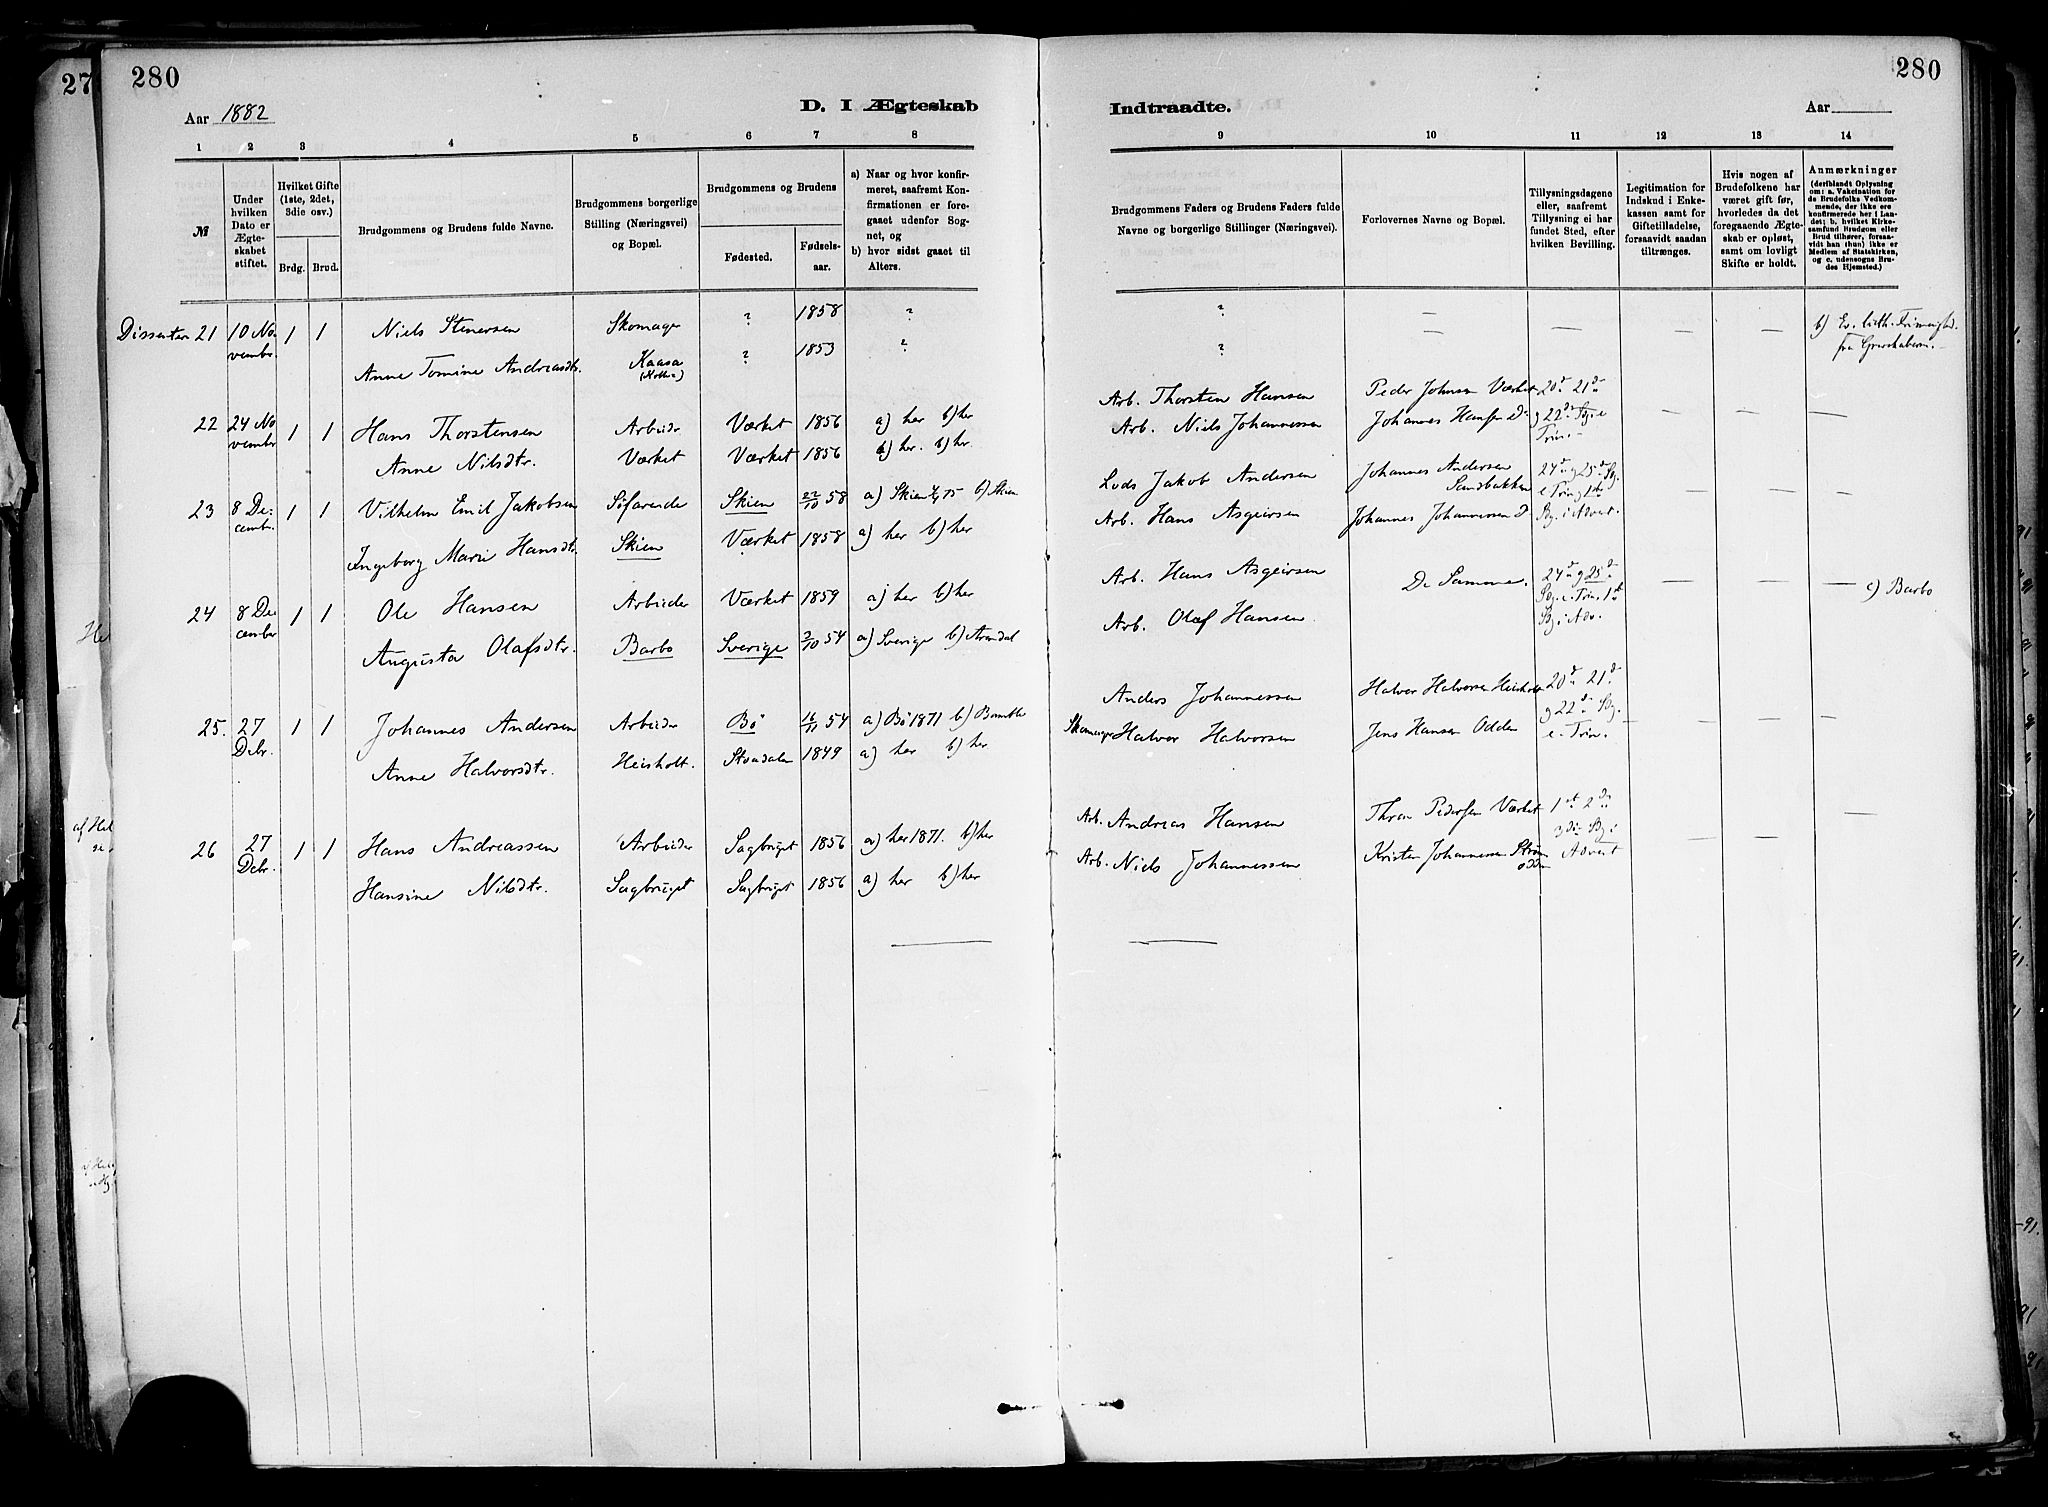 280
Aar 1882
D. I Ægteskab
1 2 3 4 5 6 7 8
№
Under hvilken Dato er Ægteskabet stiftet.
Hvilket Gifte (1ste, 2det, 3die osv.)
Brdg. Brud.
Brudgommens og Brudens fulde Navne.
Brudgommens borgerlige Stilling (Næringsvei) og Bopæl.
Brudgommens og Brudens
Fødested.
Fødsels-aar.
a) Naar og hvor konfirmeret, saafremt Konfirmationen er foregaaet udenfor Sognet, og
b) hvor sidst gaaet til Alters.
Dissenter 21 10 November 1 1 Niels Stenersen Skomager ? 1858 ?
Anne Tomine Andreasdtr. Kaasa ? 1853 ?
22 24 November 1 1 Hans Thorstensen Arbeider Værket 1856 a) her b) her
Anne Nilsdtr. Værket Værket 1856 a) her. b) her
23 8 December 1 1 Vilhelm Emil Jakobsen Søfarende Skien 22/10 58 a) Skien 75 b) Skien
Ingeborg Marie Hansdtr. Skien Værket 1858 a) her b) her
24 8 December 1 1 Ole Hansen Arbeider Værket 1859 a) her b) her
Augusta Olafsdtr. Barbo Sverige 2/10 54 a) Sverige b) Arendal
25. 27 Debr. 1 1 Johannes Andersen Arbeider Bø 16/11 54 a) Bø 1871 b) Bamble
Anne Halvorsdtr. Heisholt. Stondalen 1849 a) her b) her
26 27 Debr. 1 1 Hans Andreassen Arbeider Sagbruget 1856 a) her 1871. b) her
Hansine Nilsdtr. Sagbruget Sagbruget 1856 a) her b) her
280
Indtraadte.
Aar
9 10 11 12 13 14
Brudgommens Faders og Brudens Faders fulde Navne og borgerlige Stillinger (Næringsvei).
Forlovernes Navne og Bopæl.
Tillysningsdagene eller, saafremt Tillysning ei har fundet Sted, efter hvilken Bevilling.
Legitimation for Indskud i Enkekassen samt for Giftetilladelse, forsaavidt saadan tiltrænges.
Hvis nogen af Brudefolkene har været gift før, hvorledes da det foregaaende Ægteskab er opløst, samt om lovligt Skifte er holdt.
Anmærkninger
(deriblandt Oplysning om: a. Vakcination for de Brudefolks Vedkommende, der ikke ere konfirmerede her i Landet; b. hvilket Kirkesamfund Brudgom eller Brud tilhører, forsaavidt han (hun) ikke er Medlem af Statskirken, og c. udensogns Brudes Hjemsted.)
? — — — — b) Ev. luth. Frimenighed.
?
Arb. Thorsten Hansen Peder Johnsen Værket 20de 21de
Arb. Niels Johannessen Johannes Hansen do g 22de Sg. e Trin. — — —
Lods Jakob Andersen Johannes Andersen Sandbakken 24de g 25de Sg.
Arb. Hans Asgeirsen Johannes Johannessen do e Trin g 1ste Sg. i Advt. — — —
Arb. Hans Asgeirsen De Samme. 24de g 25de — — — c) Barbo
Arb. Olaf Hansen Sg. e. Trin. 1ste Sg. i Adv.
Anders Johannessen Halvor Halvorsen Heisholt 20de 21de
Skomager Halvor Halvorsen Jens Hansen Odden g 22de Sg. e. Trin. — — —
Arb. Andreas Hansen Thron Pedersen Værket 1ste 2den
Arb. Niels Johannessen Kristen Johannessen 3die Sg i Advent — — —